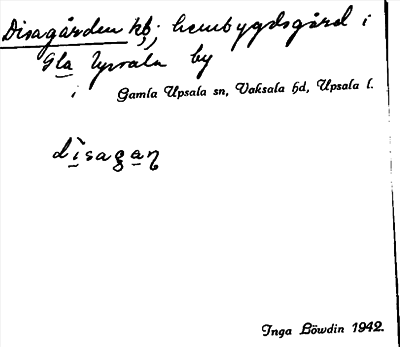 Disagården kb; hembygdsgård i
Gla Upsala by
i Gamla Upsala sn, Vaksala hd, Upsala l.
dìsagaɳ
Inga Löwdin 1942.